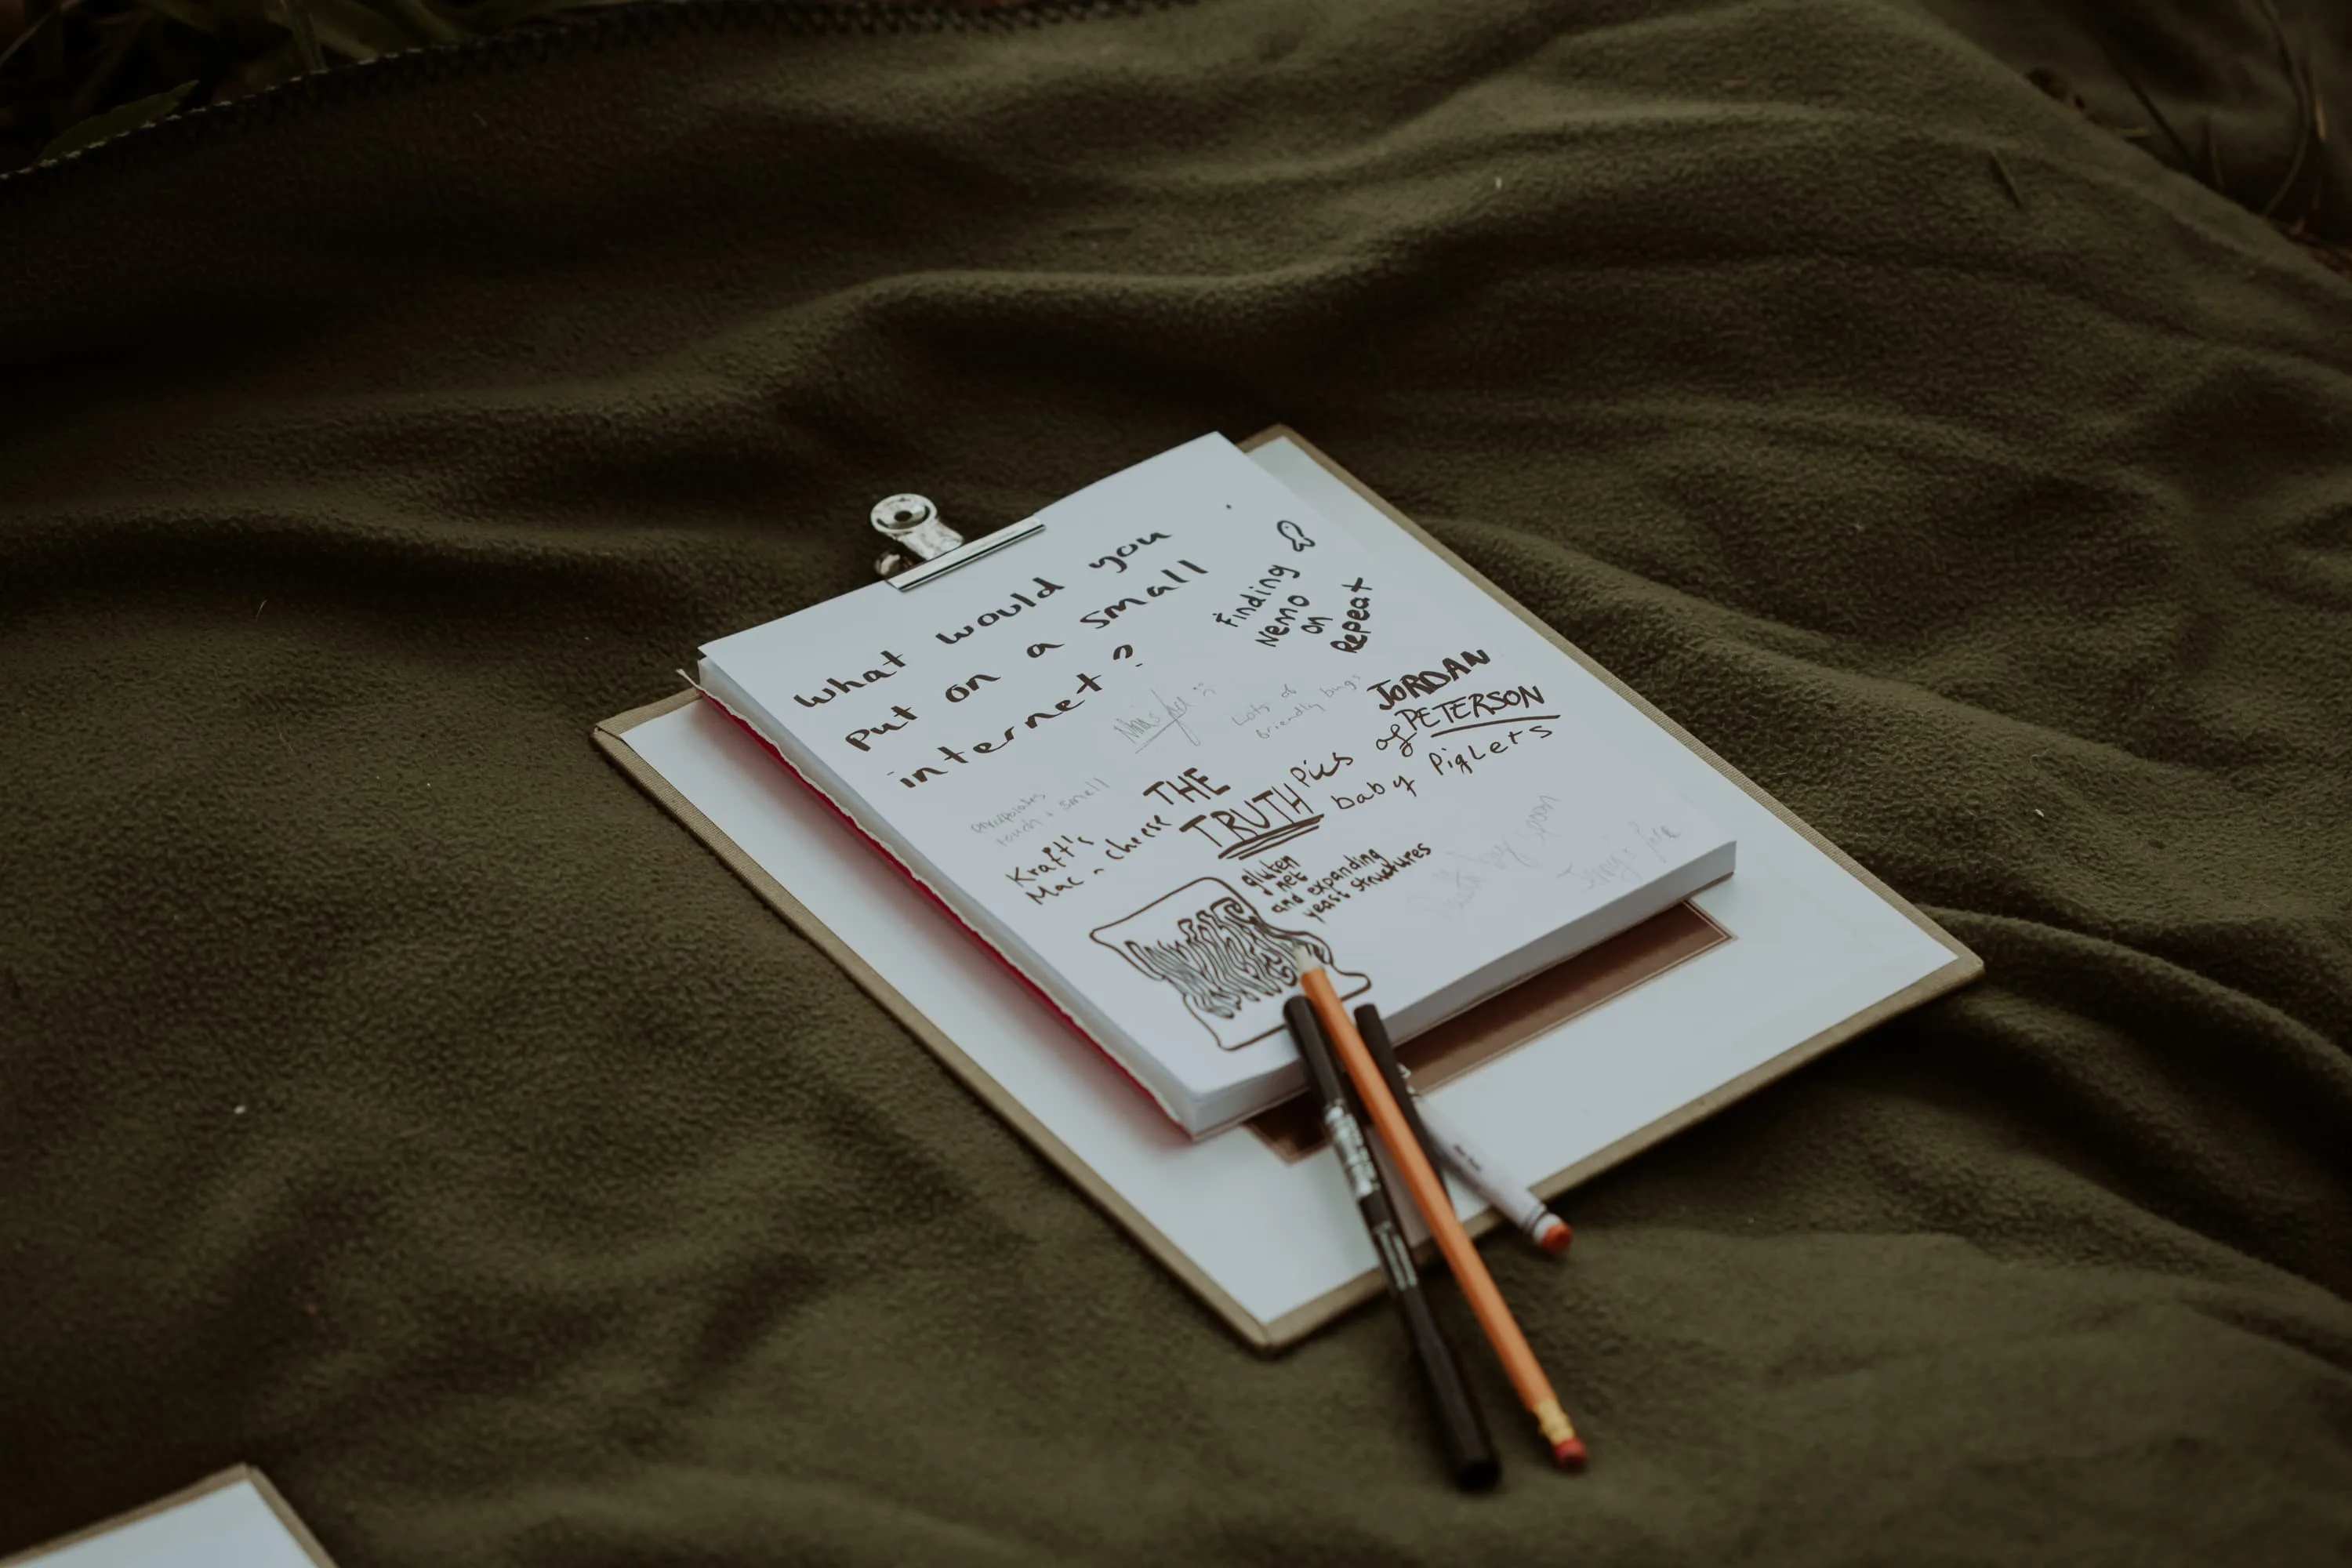 what would you
put on a small
internet?
Finding
Nemo
on
Repeat
Lots of
friendly bings
JORDAN
PETERSON
Pics of
baby PigLets
THE
TRUTH
touch + smell
Kraft's
Mac n cheese
gluten
net
and expanding
yeast structures